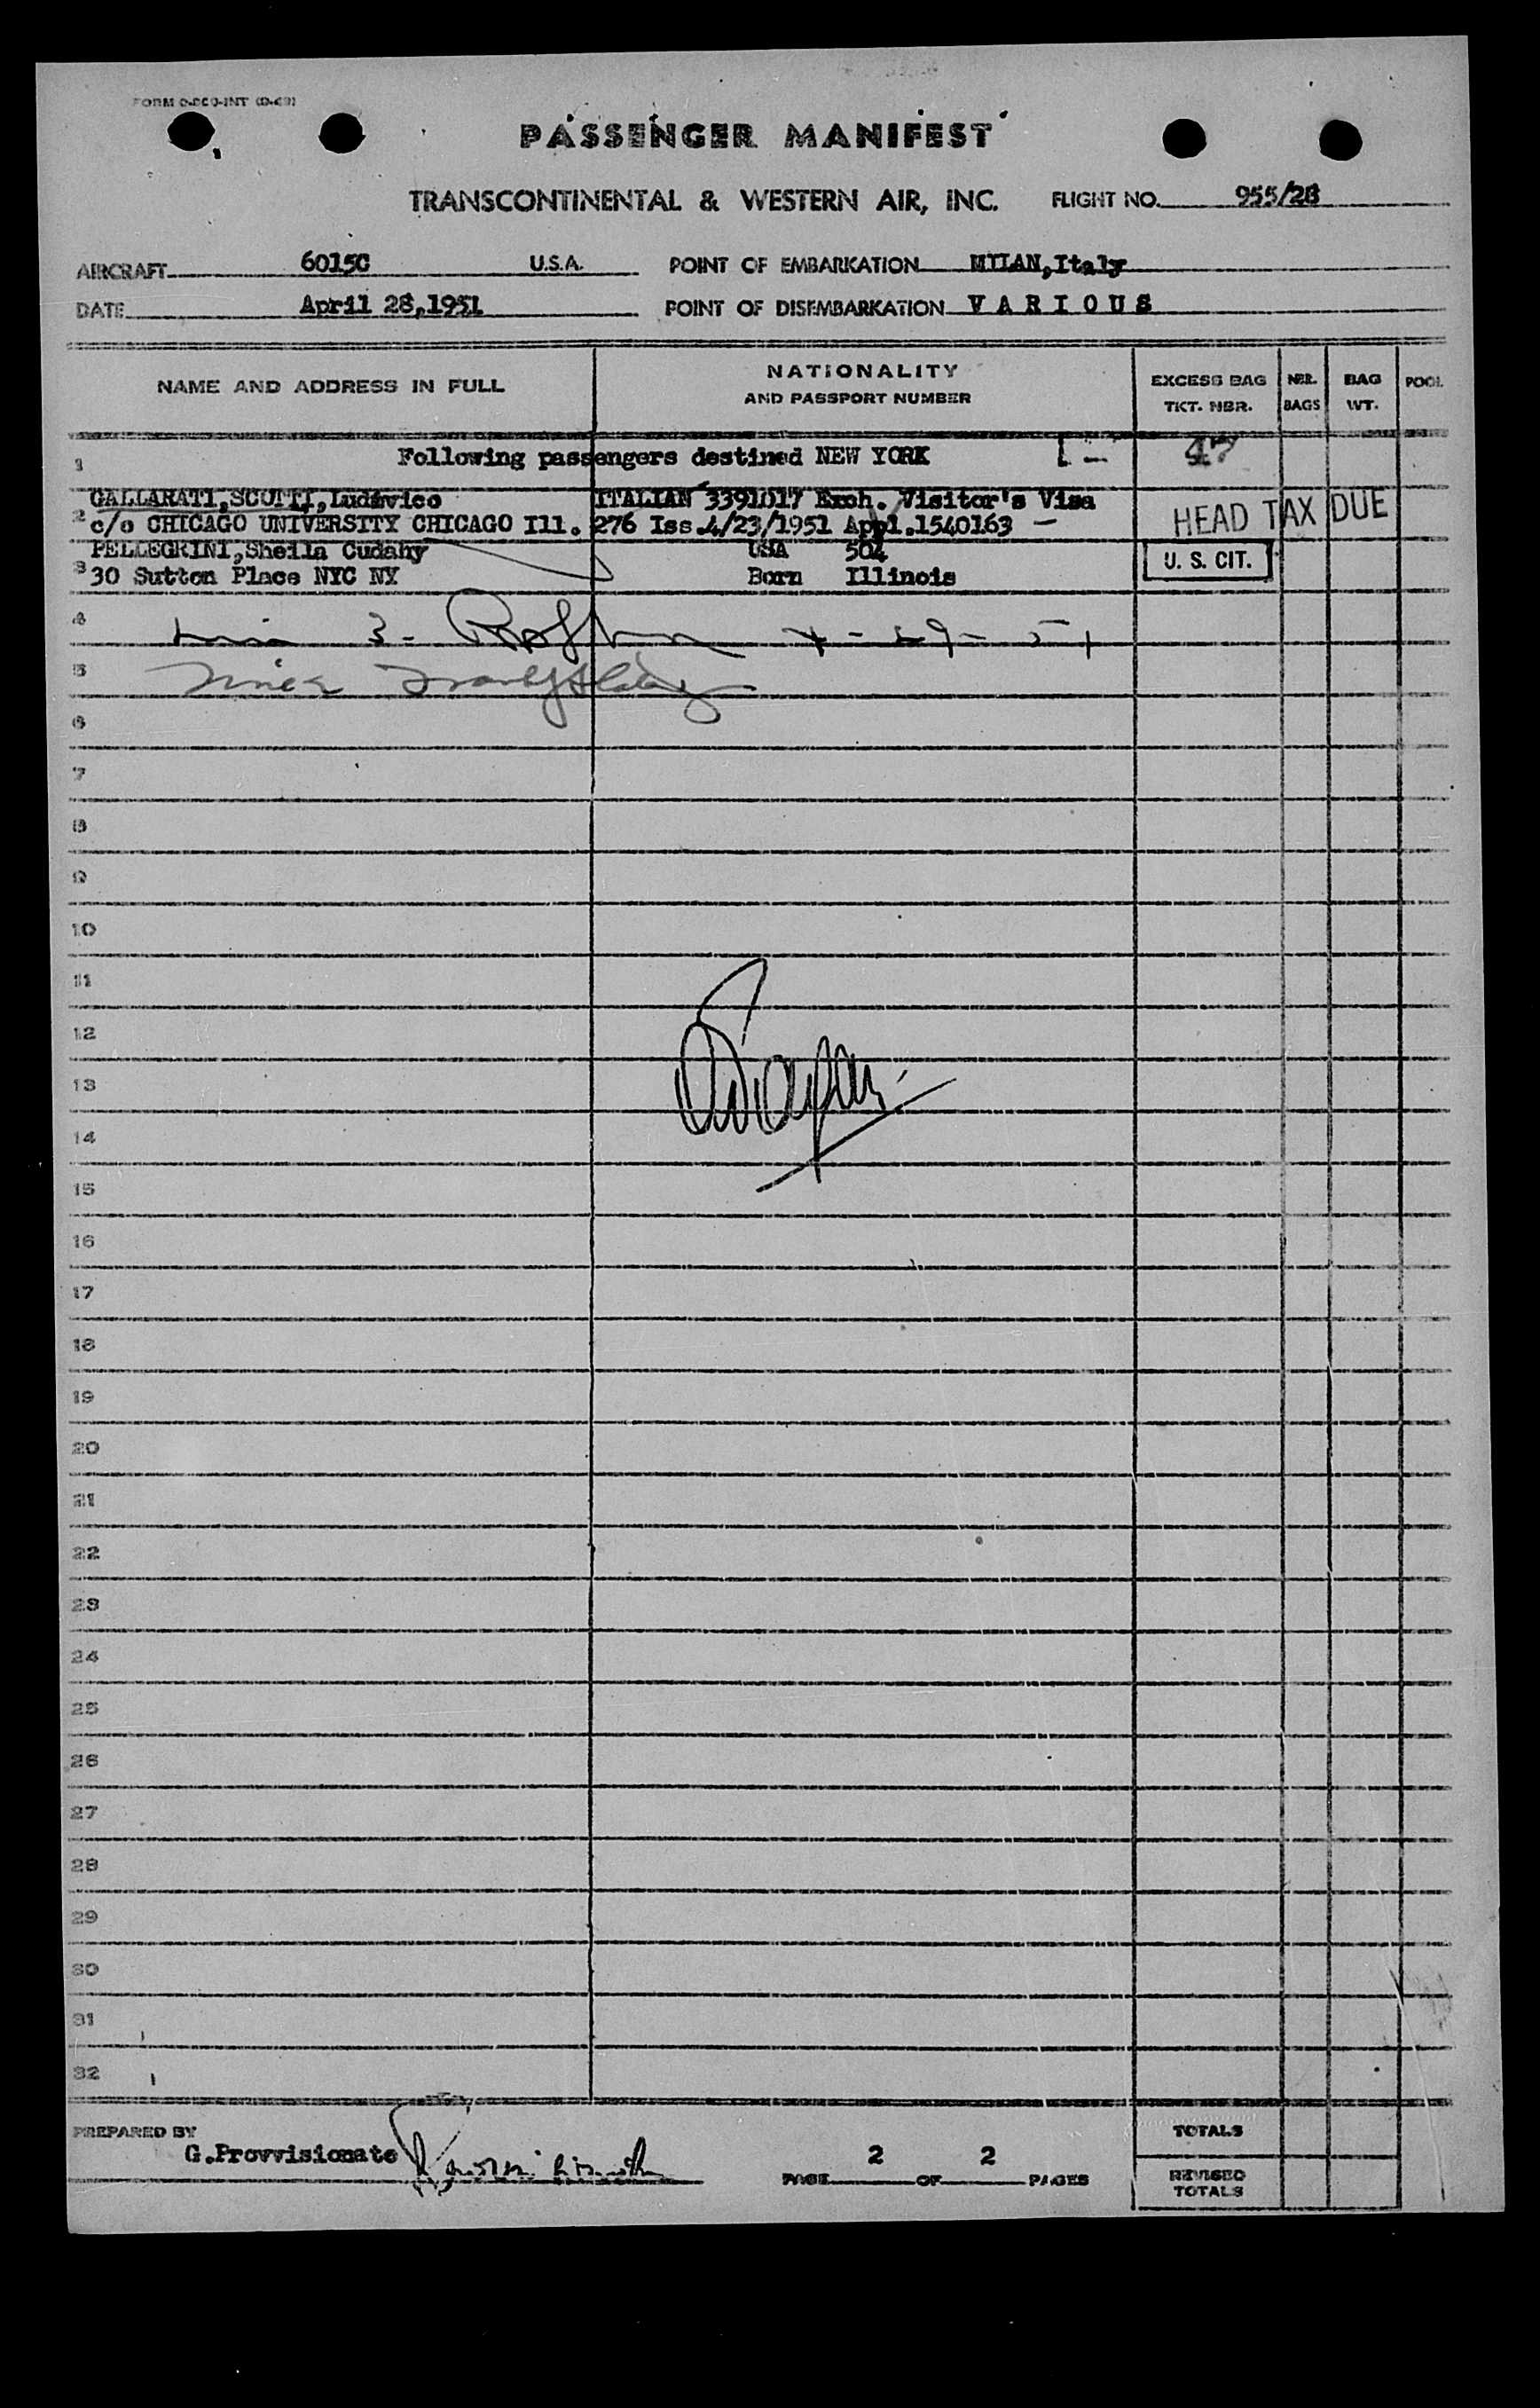 PASSENGER MANIFEST
TRANSCONTINENTAL & WESTERN AIR, INC. FLIGHT NO. 955/28
AIRCRAFT 6015C U.S.A. POINT OF EMBARKATION MILAN,Italy
DATE April 28,1951 POINT OF DISEMBARKATION V A R I O U S
NAME AND ADDRESS IN FULL NATIONALITY AND PASSPORT NUMBER EXCESS BAG TKT. NBR. NBR. BAGS BAG WT. POOL
1 Following passengers destined NEW YORK 47
GALLARATI,SCOTTI,Ludovico ITALIAN 3391017 Exch. Visitor's Visa
2 c/o CHICAGO UNIVERSITY CHICAGO Ill. 276 Iss.4/23/1951 Appl.1540163 — HEAD TAX DUE
PELLEGRINI,Sheila Cudahy USA 504
3 30 Sutton Place NYC NY Born Illinois U. S. CIT.
4 3- 4-29-51
5
6
7
8
9
10
11
12
13
14
15
16
17
18
19
20
21
22
23
24
25
26
27
28
29
30
31
32
PREPARED BY TOTALS
G.Provvisionato PAGE 2 OF 2 PAGES
REVISED TOTALS